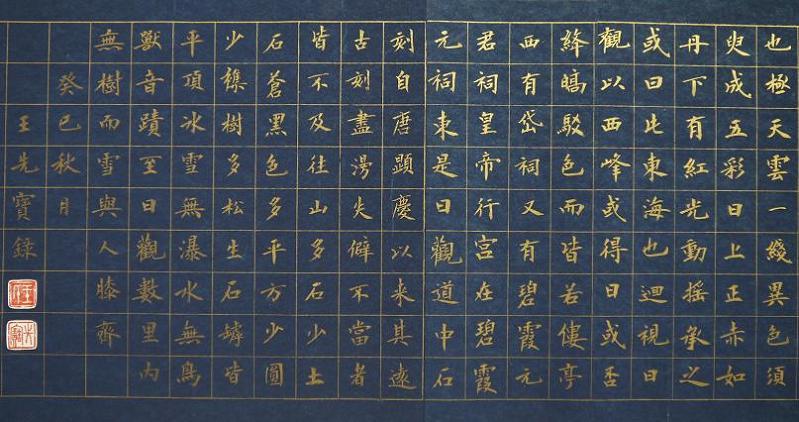 也極天雲一綫異色須
臾成五彩日上正赤如
丹下有紅光動搖承之
或曰此東海也迴視日
觀以西峰或得日或否
絳皜駁色而皆若僂亭
西有岱祠又有碧霞元
君祠皇帝行宮在碧霞
元祠東是日觀道中石
刻自唐顯慶以來其遠
古刻盡漫失僻不當者
皆不及往山多石少土
石蒼黑色多平方少圓
少襍樹多松生石罅皆
平頂冰雪無瀑水無鳥
獸音蹟至日觀數里內
無樹而雪與人膝齊
癸巳秋月
王先寶錄